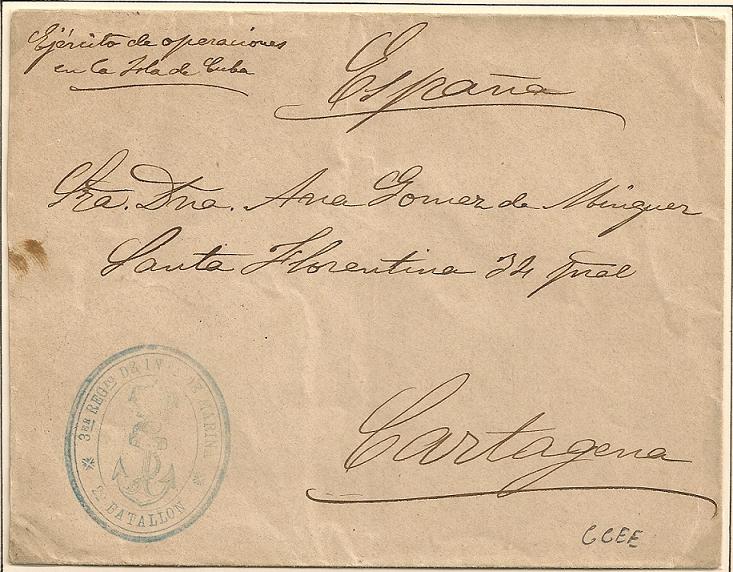 Ejército de operaciones
en la Isla de Cuba
España
Sra. Dna. Ana Gomez de Minguez
Santa Florentina 34 pral
Cartagena
3ER REGTO DE INFA DE MARINA
2º BATALLON
CCEE